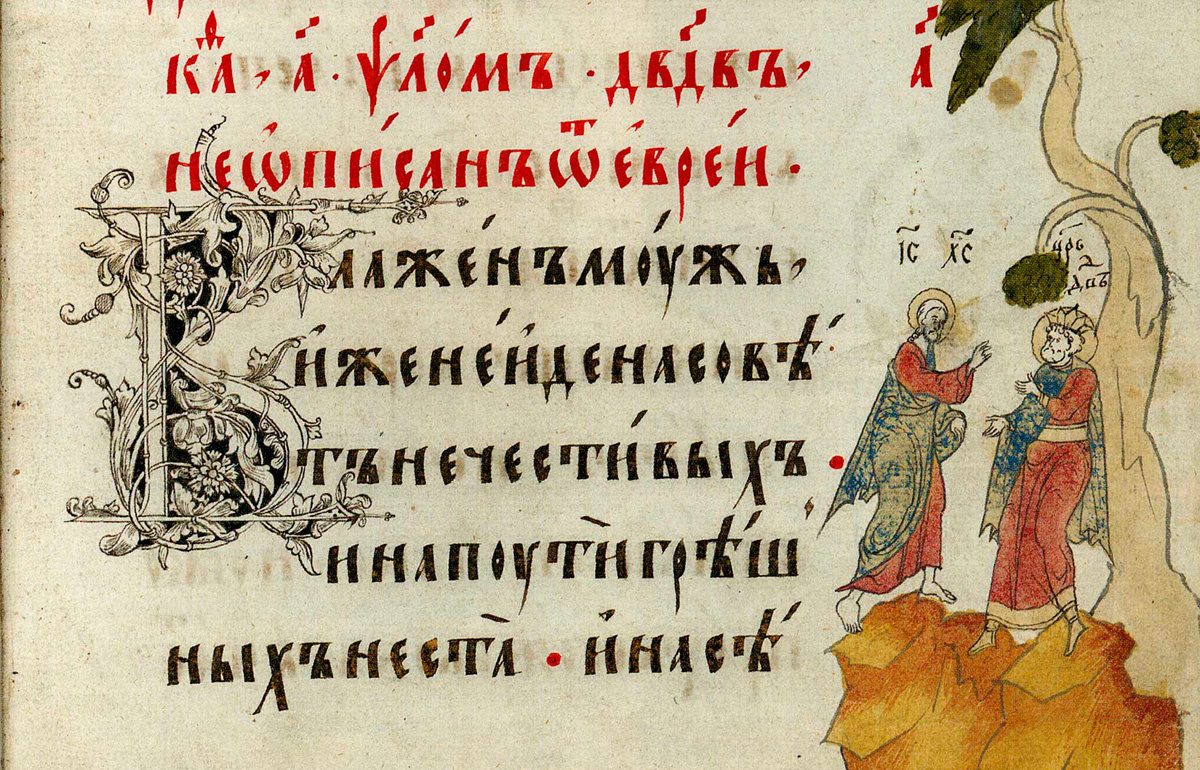 кⷶа҇, а҃ · ѱло́мъ · дв҃дв҃ъ, а҃
неѡпи́санъ ѿ е҆вре́и ·
Блаже́нъ мꙋ́жь,
и҆же не и҆де на совѣ́
тъ нечести́выхъ ·
и на поути̇̀ грѣ́ш
ныхъ неста̀ · и҆ на сѣ́
і҃с х҃с
цр҃ь
дв҃ъ